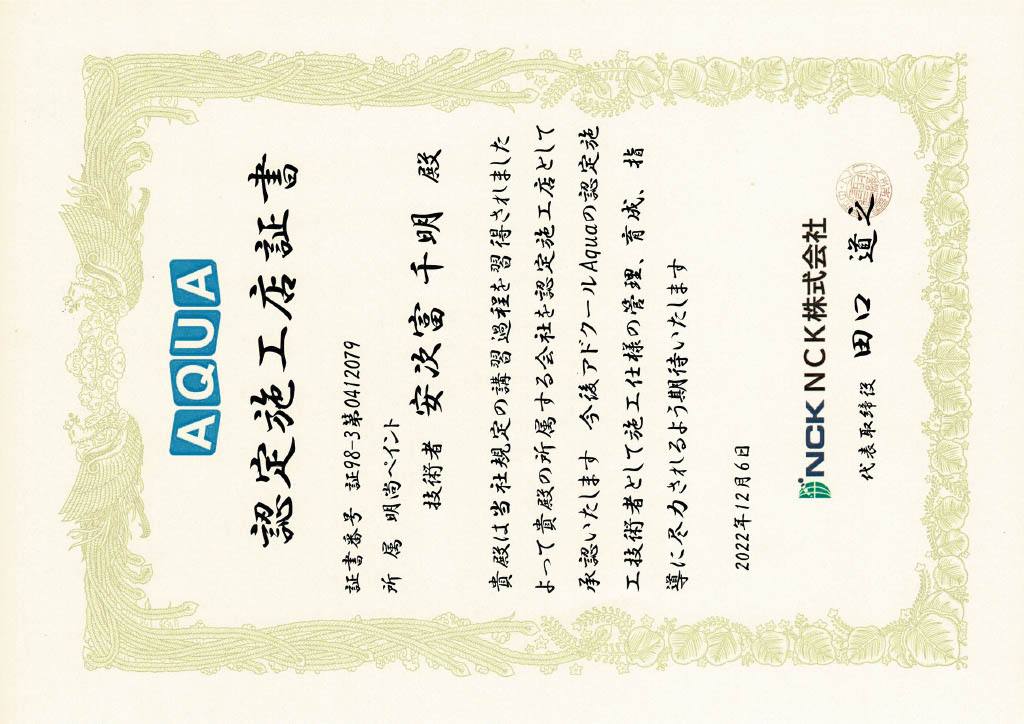 AQUA
認定施工店証書
証書番号 証98-3第0412079
所属 明尚ペイント
技術者 安次富 千明 殿
貴殿は当社規定の講習過程を習得されました
よって貴殿の所属する会社を認定施工店として
承認いたします 今後アドクールAquaの認定施
工技術者として施工仕様の管理、育成、指
導に尽力されるよう期待いたします
2022年12月6日
NCK NCK株式会社
代表取締役 田口 道之